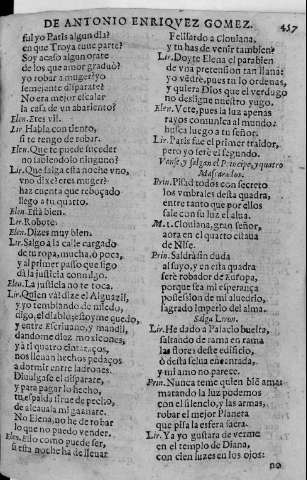 DE ANTONIO ENRIQVEZ GOMEZ. 457
ful yo Paris algun dia?
en que Troya tuue parte?
Soy acaso algun orate
de los que amor graduò?
yo robar a muger? yo
semejante disparate?
No era mejor escalar
la casa de vn abariento?
Elen. Eres vil.
Lir. Habla con tiento,
si te tengo de robar.
Elen. Que te puede suceder
no sabiendolo ninguno?
Lir. Que salga esta noche vno,
vno dixe? eres muger?
haz cuenta que roboçado
llego a tu quarto.
Elen. Està bien.
Lir. Robote.
Elen. Dizes muy bien.
Lir. Salgo a la calle cargado
de tu ropa, mucha, o poca,
y al primer passo que sigo
dà la justicia conmigo.
Elen. La justicia no te toca.
Lir. Quien và? dize el Alguazil,
y yo temblando de miedo,
digo, el diablo; estoyme quedo,
y entre Escriuano, y mandil,
dandome diez moxicones,
ya si quatro
nos lleuan hechos pedaços
a dormir entre ladrones.
Diuulgase el disparate,
y para pagar lo hecho,
tu espalda sirue de pecho,
de alcauala mi gaznate.
No Elena, no he de robar
lo que no puedo vender.
Elen. Esso como puede ser,
si esta noche ha de lleuar
Felisardo a Clouiana,
y tu has de venir tambien?
Lir. Doyte Elena el parabien
de vna pretension tan llana:
yo vedrè, pues tu lo ordenas,
y quiera Dios que el verdugo
no designe nuestro yugo.
Elen. Vete, pues la luz apenas
rayos comunica al mundo:
busca luego a tu señor.
Lir. Paris fue el primer traidor,
pero yo serè el segundo.
Vanse, y salgan el Principe, y quatro
Mascarados.
Prin. Pisad todos con secreto
los vmbrales desta quadra,
entre tanto que por ellos
sale con su luz el alua.
M. 1. Clouiana, gran señor,
aora en el quarto estaua
de Nise.
Prin. Saldrà sin duda
al suyo, y en esta quadra
serè robador de Europa,
porque sea mi esperança
possession de mi aluedrio,
sagrado Imperio del alma.
Salga Liron.
Lir. He dado a Palacio buelta,
saltando de rama en rama
las flores deste edificio,
ò desta selua encantada,
y mi amo no parece.
Prin. Nunca teme quien biē ama:
matando la luz podemos
con el silencio, y las armas,
robar el mejor Planeta
que pisa la esfera sacra.
Lir. Ya yo gustara de verme
en el templo de Diana,
con cien luzes en los ojos:
no